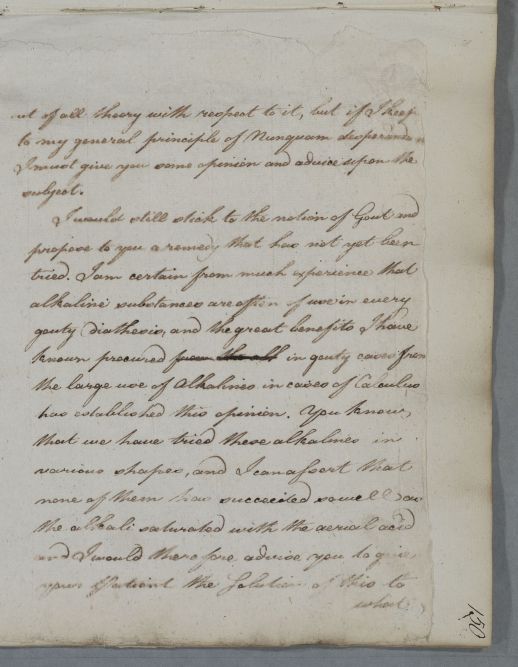 ut of all theory with respect to it, but if I keep
to my general principle of Nunquam desperandum
I must give you some opinion and advice upon the
subject.
I would still stick to the notion of Gout and
propose to you a remedy that has not yet been
tried. I am certain from much experience that
alkaline substances are often of use in every
gouty diathesis, and the great benefits I have
known procured in gouty cases from
the large use of Alkalines in cases of Calculus
has established this opinion. You know,
that we have tried these alkalines in
various shapes, and I can assert that
none of them has succeeded so well as
the alkali saturated with the aerial acid
and I would therefore advise you to give
your Patient the Solution of this to
what
150